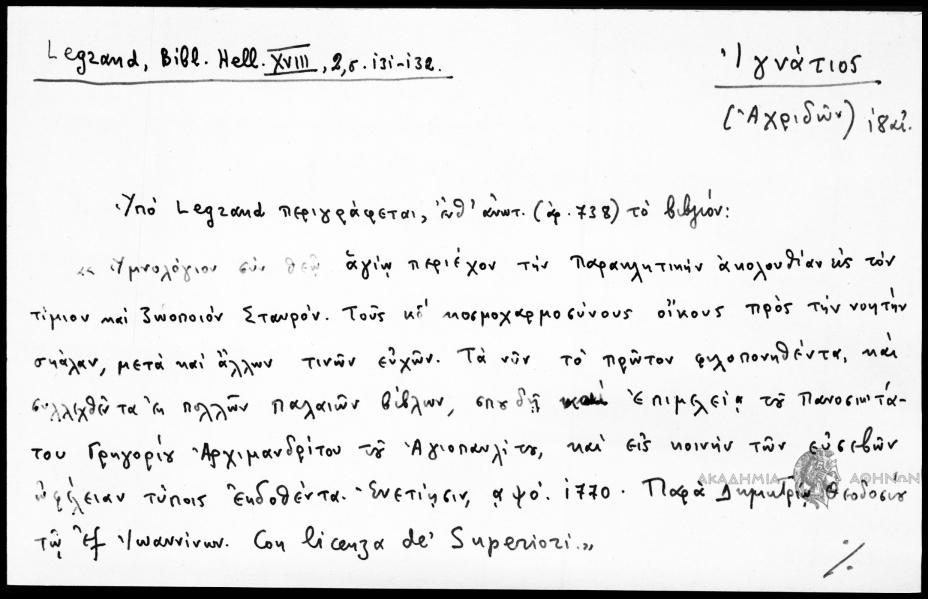 Legrand, Bibl. Hell. XVIII, 2, σ. 131-132.
Ἰγνάτιος
(Ἀχριδῶν) 18αι.
Ὑπό Legrand περιγράφεται, ἔνθ' ἀνωτ. (ἀρ. 738) τό βιβλίον:
«Ὑμνολόγιον σύν θεῷ ἁγίῳ περιέχον τήν Παρακλητικήν ἀκολουθίαν εἰς τόν
τίμιον καί ζωοποιόν Σταυρόν. Τούς κδ' κοσμοχαρμοσύνους οἴκους πρός τήν νοητήν
σκάλαν, μετά καί ἄλλων τινῶν εὐχῶν. Τά νῦν τό πρῶτον φιλοπονηθέντα, καί
συλλεχθέντα ἐκ πολλῶν παλαιῶν βίβλων, σπουδῇ καί ἐπιμελείᾳ τοῦ Πανοσιωτά-
του Γρηγορίου Ἀρχιμανδρίτου τοῦ Ἁγιοπαυλίτου, καί εἰς κοινήν τῶν εὐσεβῶν
ὠφέλειαν τύποις ἐκδοθέντα. Ἐνετίησιν, αψο'. 1770. Παρά Δημητρίῳ Θεοδοσίου
τῷ ἐξ Ἰωαννίνων. Con licenza de' Superiori.»
ΑΚΑΔΗΜΙΑ ΑΘΗΝΩΝ
./.